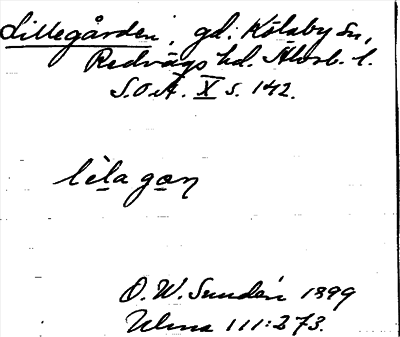 Lillegården, gd. Kölaby sn,
Redvägs hd. Älvsb. l.
S.O.Ä. X s. 142.
lila gon
O. W. Sundén 1899
Ulma 111:273.